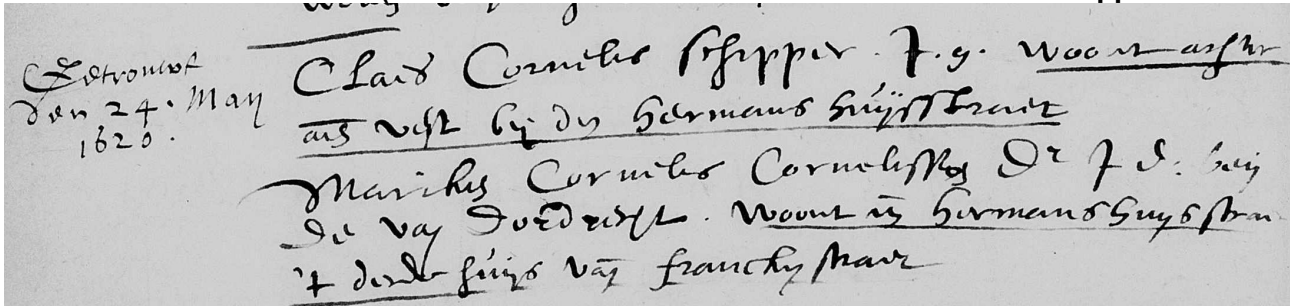 Getrouwt
den 24. Maij
1620.
Claes Cornelis schipper. J.g. woont achter
aen vest bij den hermans huijsstraet
Mariken Cornelis Cornelissen Dr J d: beij
de van dordrecht. woont in hermanshuijs strae
't derde huijs van francken straet